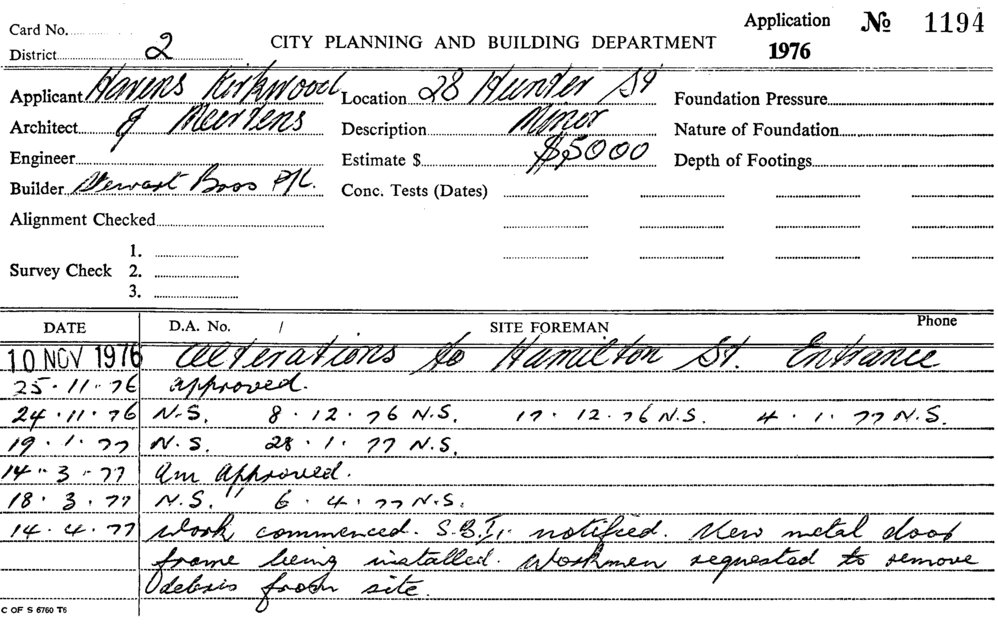 Card No.
Application № 1194
District 2
CITY PLANNING AND BUILDING DEPARTMENT
1976
Applicant Havens Kirkwood
Location 28 Hunter St
Foundation Pressure
Architect & Meertens
Description Minor
Nature of Foundation
Engineer
Estimate $ $5000
Depth of Footings
Builder Stewart Bros P/L.
Conc. Tests (Dates)
Alignment Checked
Survey Check 1.
2.
3.
DATE D.A. No. / SITE FOREMAN Phone
10 NOV 1976 Alterations to Hamilton St. Entrance
25.11.76 approved.
24.11.76 N.S. 8.12.76 N.S. 17.12.76 N.S. 4.1.77 N.S.
19.1.77 N.S. 28.1.77 N.S.
14.3.77 Am Approved.
18.3.77 N.S. 6.4.77 N.S.
14.4.77 Work commenced. S.B.I. notified. New metal door
frame being installed. Workmen requested to remove
debris from site.
C OF S 6760 T6